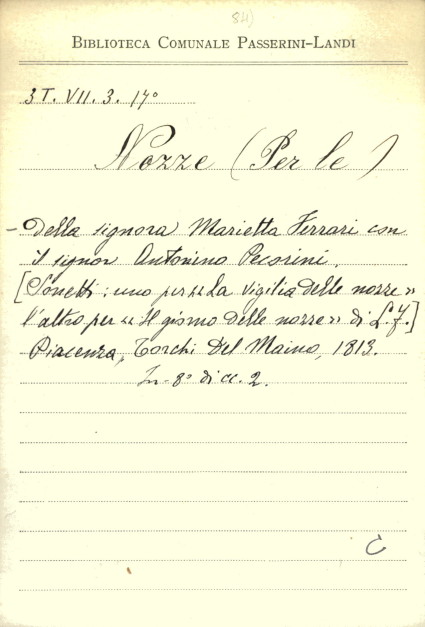 84)
BIBLIOTECA COMUNALE PASSERINI-LANDI
3T. VII. 3. 17°
Nozze (Per le)
- Della signora Marietta Ferrari con
il signor Antonino Pecorini.
[Sonetti: uno per «La vigilia delle nozze»
l'altro per «Il giorno delle nozze» di L. F.]
Piacenza, Torchi Del Maino, 1813.
In-8° di cc. 2.
C